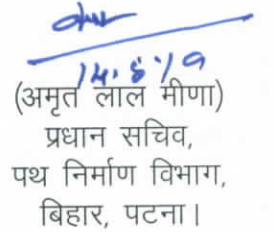 14.8.19
(अमृत लाल मीणा)
प्रधान सचिव,
पथ निर्माण विभाग,
बिहार, पटना।